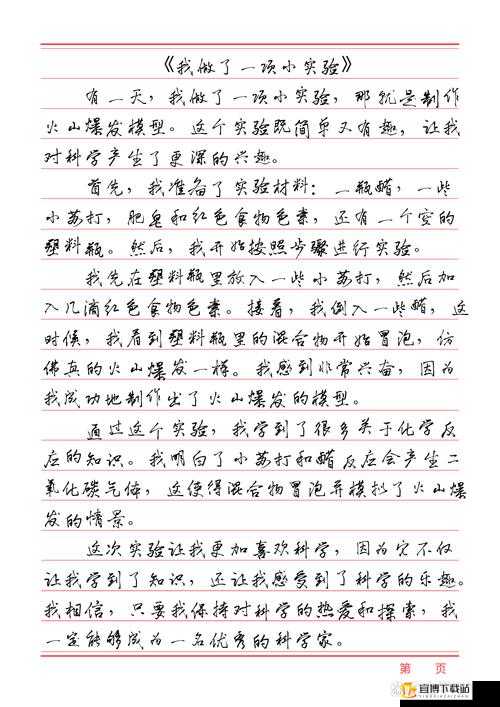 《我做了一项小实验》
有一天，我做了一项小实验，那就是制作
火山爆发模型。这个实验既简单又有趣，让我
对科学产生了更深的兴趣。
首先，我准备了实验材料：一瓶醋，一些
小苏打，肥皂和红色食物色素，还有一个空的
塑料瓶。然后，我开始按照步骤进行实验。
我先在塑料瓶里放入一些小苏打，然后加
入几滴红色食物色素。接着，我倒入一些醋，这
时候，我看到塑料瓶里的混合物开始冒泡，仿
佛真的火山爆发一样。我感到非常兴奋，因为
我成功地制作出了火山爆发的模型。
通过这个实验，我学到了很多关于化学反
应的知识。我明白了小苏打和醋反应会产生二
氧化碳气体，这使得混合物冒泡并模拟了火山爆
发的情景。
这次实验让我更加喜欢科学，因为它不仅
让我学到了知识，还让我感受到了科学的乐趣。
我相信，只要我保持对科学的热爱和探索，我
一定能够成为一名优秀的科学家。
第 页
宜博下载站
YINBOXIAZAIZHAN